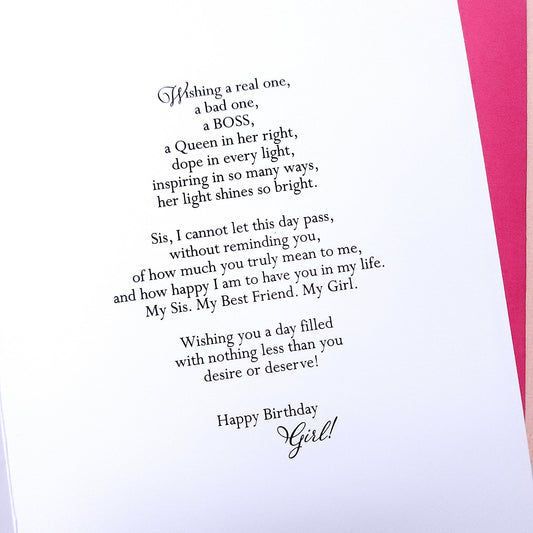 Wishing a real one,
a bad one,
a BOSS,
a Queen in her right,
dope in every light,
inspiring in so many ways,
her light shines so bright.
Sis, I cannot let this day pass,
without reminding you,
of how much you truly mean to me,
and how happy I am to have you in my life.
My Sis. My Best Friend. My Girl.
Wishing you a day filled
with nothing less than you
desire or deserve!
Happy Birthday
Girl!